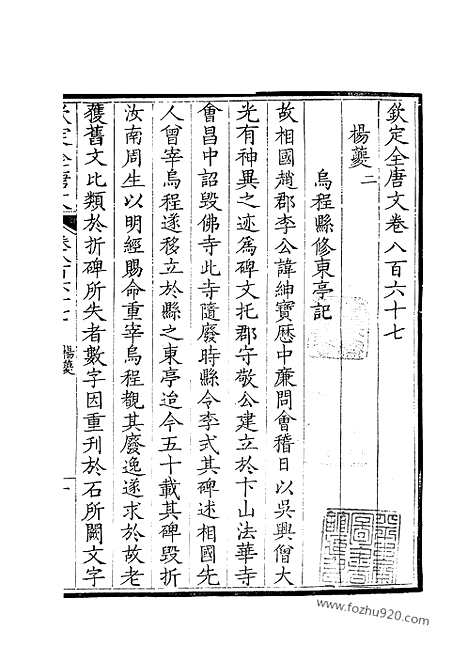 欽定全唐文卷八百六十七
楊夔二
烏程縣修東亭記
故相國趙郡李公諱紳寶歷中廉問會稽日以吳興僧大
光有神異之迹爲碑文托郡守敬公建立於卞山法華寺
會昌中詔毀佛寺此寺隨廢時縣令李式其碑述相國先
人曾宰烏程遂移立於縣之東亭迨今五十載其碑毀折
汝南周生以明經賜命重宰烏程覩其廢逸遂求於故老
獲舊文比類於折碑所失者數字因重刊於石所闕文字
欽定全唐文
卷八百六十七
楊夔
一
www.fozhu920.com